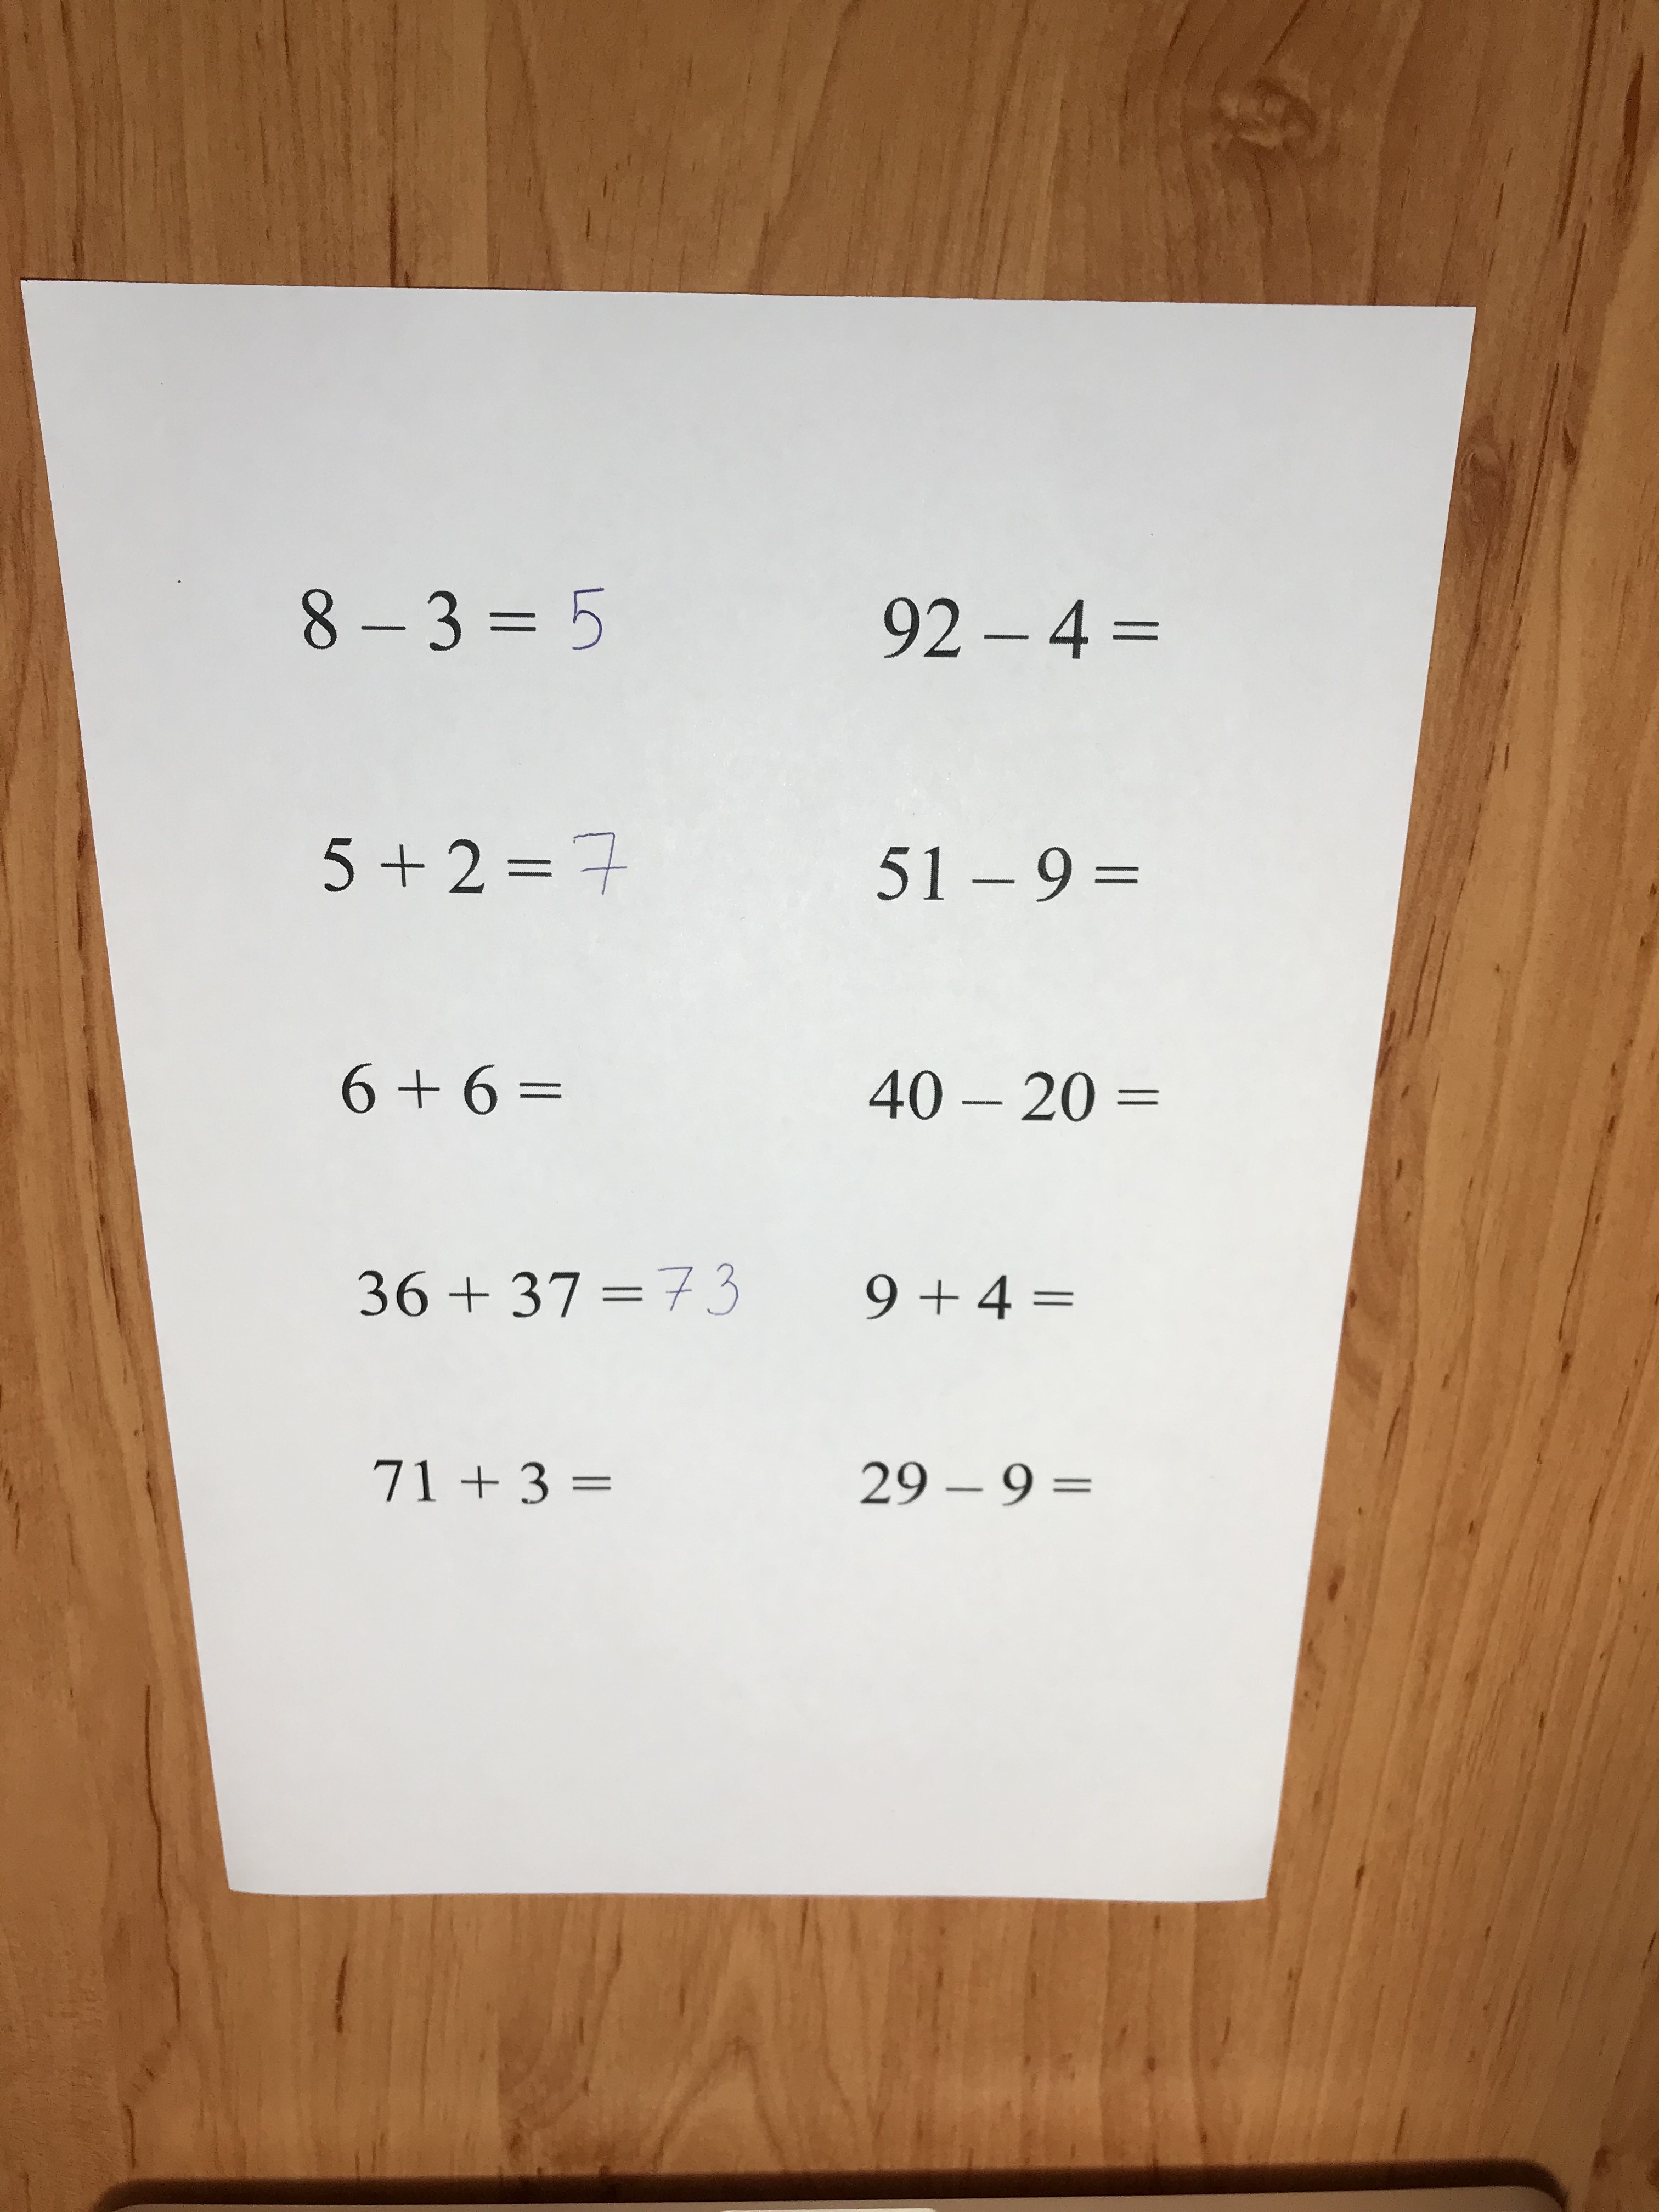 8 – 3 = 5
5 + 2 = 7
6 + 6 =
36 + 37 = 73
71 + 3 =
92 – 4 =
51 – 9 =
40 – 20 =
9 + 4 =
29 – 9 =